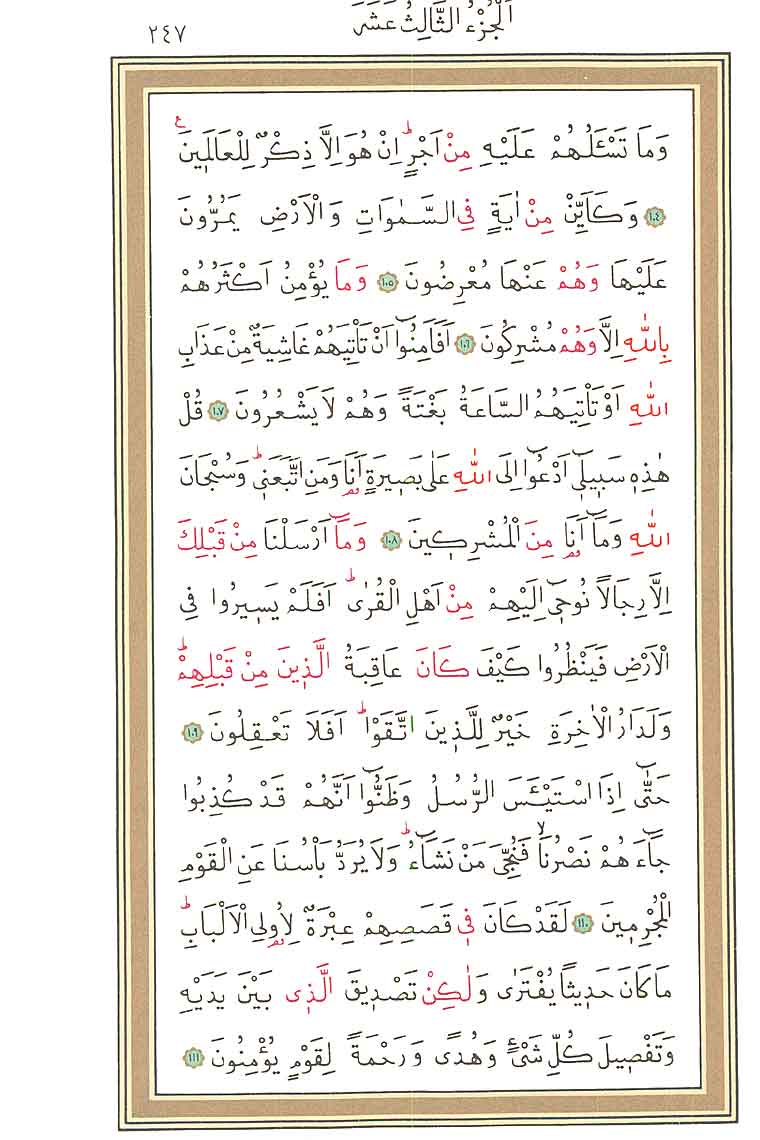 اَلْجُزْءُ الثَّالِثُ عَشَرَ
٢٤٧
وَمَا تَسْـَٔلُهُمْ عَلَيْهِ مِنْ اَجْرٍۜ اِنْ هُوَ اِلَّا ذِكْرٌ لِلْعَالَم۪ينَ ع
١٠٤ وَكَاَيِّنْ مِنْ اٰيَةٍ فِي السَّمٰوَاتِ وَالْاَرْضِ يَمُرُّونَ
عَلَيْهَا وَهُمْ عَنْهَا مُعْرِضُونَ ١٠٥ وَمَا يُؤْمِنُ اَكْثَرُهُمْ
بِاللّٰهِ اِلَّا وَهُمْ مُشْرِكُونَ ١٠٦ اَفَاَمِنُٓوا اَنْ تَأْتِيَهُمْ غَاشِيَةٌ مِنْ عَذَابِ
اللّٰهِ اَوْ تَأْتِيَهُمُ السَّاعَةُ بَغْتَةً وَهُمْ لَا يَشْعُرُونَ ١٠٧ قُلْ
هٰذِه۪ سَب۪يل۪ٓي اَدْعُٓوا اِلَى اللّٰهِ عَلٰى بَص۪يرَةٍ اَنَا۬ وَمَنِ اتَّبَعَن۪يۜ وَسُبْحَانَ
اللّٰهِ وَمَٓا اَنَا۬ مِنَ الْمُشْرِك۪ينَ ١٠٨ وَمَٓا اَرْسَلْنَا مِنْ قَبْلِكَ
اِلَّا رِجَالًا نُوح۪ٓي اِلَيْهِمْ مِنْ اَهْلِ الْقُرٰىۜ اَفَلَمْ يَس۪يرُوا فِي
الْاَرْضِ فَيَنْظُرُوا كَيْفَ كَانَ عَاقِبَةُ الَّذ۪ينَ مِنْ قَبْلِهِمْۜ
وَلَدَارُ الْاٰخِرَةِ خَيْرٌ لِلَّذ۪ينَ اتَّقَوْاۜ اَفَلَا تَعْقِلُونَ ١٠٩
حَتّٰٓى اِذَا اسْتَيْـَٔسَ الرُّسُلُ وَظَنُّٓوا اَنَّهُمْ قَدْ كُذِبُوا
جَٓاءَهُمْ نَصْرُنَاۙ فَنُجِّيَ مَنْ نَشَٓاءُۜ وَلَا يُرَدُّ بَأْسُنَا عَنِ الْقَوْمِ
الْمُجْرِم۪ينَ ١١٠ لَقَدْ كَانَ ف۪ي قَصَصِهِمْ عِبْرَةٌ لِاُو۬لِي الْاَلْبَابِۜ
مَا كَانَ حَد۪يثًا يُفْتَرٰى وَلٰكِنْ تَصْد۪يقَ الَّذ۪ي بَيْنَ يَدَيْهِ
وَتَفْص۪يلَ كُلِّ شَيْءٍ وَهُدًى وَرَحْمَةً لِقَوْمٍ يُؤْمِنُونَ ١١١